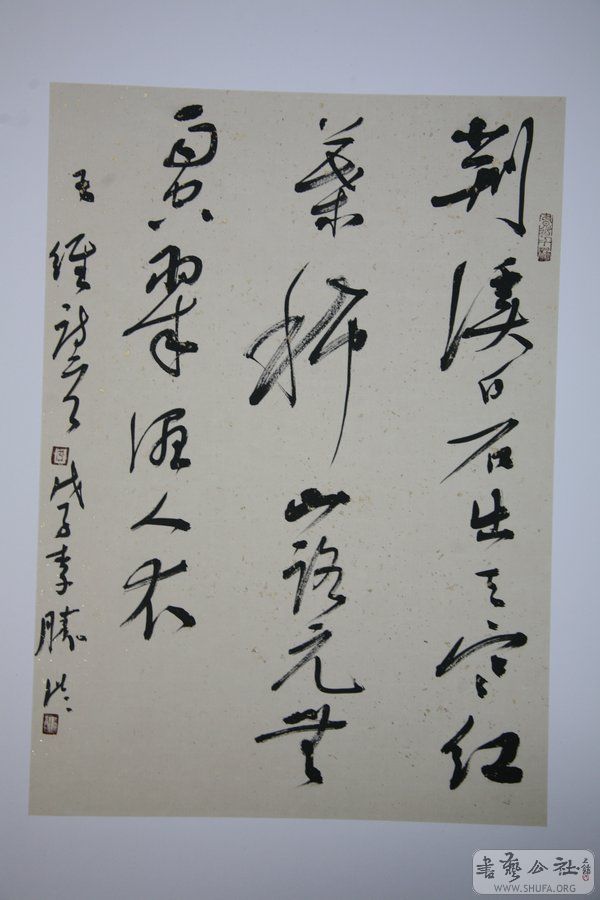 荆溪白石出天寒紅
葉稀山路元無
雨空翠濕人衣
王維詩一首 戊子李勝洪
書藝公社
WWW.SHUFA.ORG